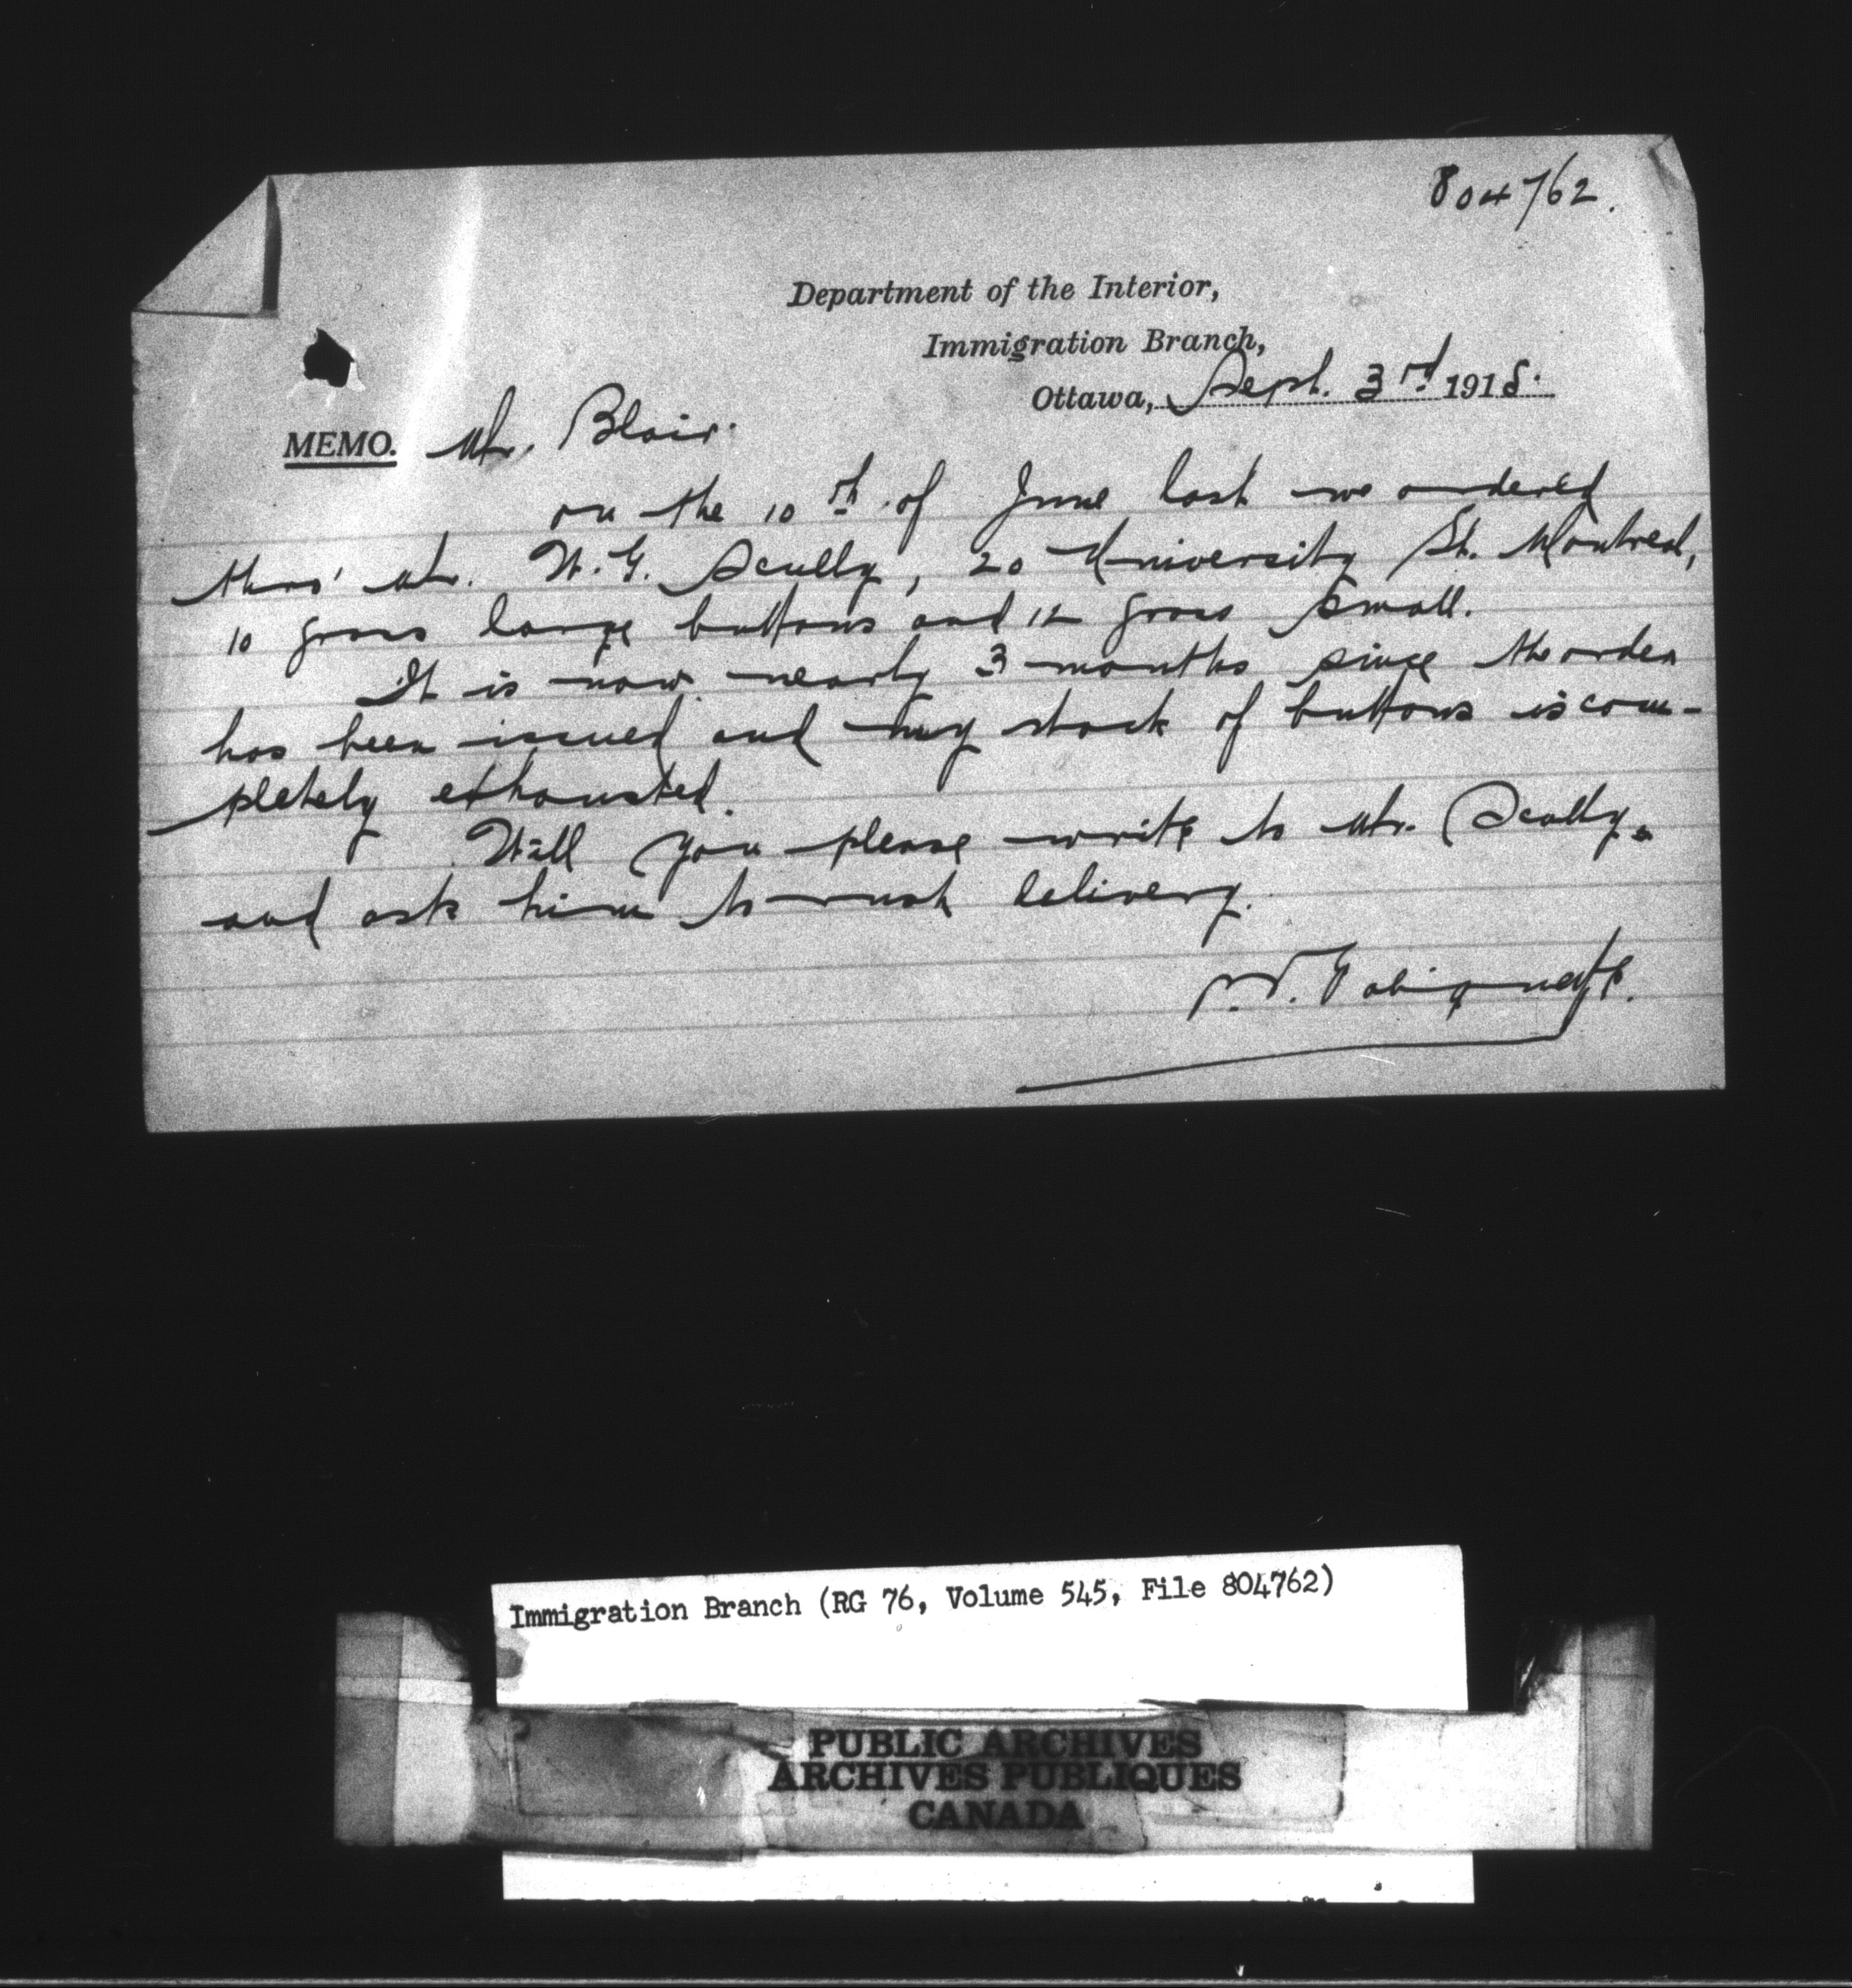 804762.
Department of the Interior,
Immigration Branch,
Ottawa, Sept. 3rd 1918.
MEMO. Mr. Blair.
on the 10th of June last we ordered
thro' Mr. W. G. Scully, 20 University St. Montreal,
10 gross large buttons and 12 gross small.
It is now nearly 3 months since the order
has been issued and my stock of buttons is com-
pletely exhausted.
Will you please write to Mr. Scully
and ask him to rush delivery.
Immigration Branch (RG 76, Volume 545, File 804762)
PUBLIC ARCHIVES
ARCHIVES PUBLIQUES
CANADA